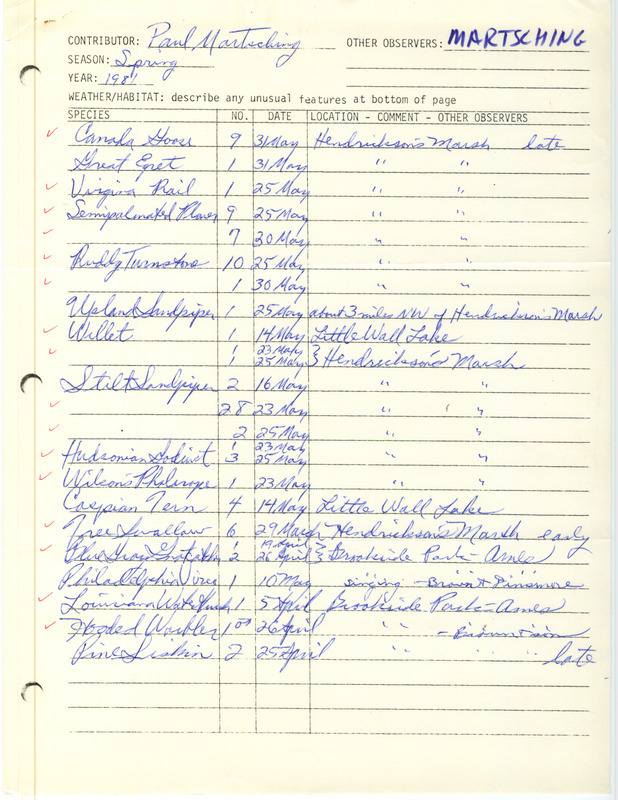 CONTRIBUTOR: Paul Martsching OTHER OBSERVERS: MARTSCHING
SEASON: Spring
YEAR: 1981
WEATHER/HABITAT: describe any unusual features at bottom of page
SPECIES NO. DATE LOCATION - COMMENT - OTHER OBSERVERS
✓ Canada Goose 9 31 May Hendrickson's Marsh late
Great Egret 1 31 May " "
✓ Virginia Rail 1 25 May " "
✓ Semipalmated Plover 9 25 May " "
✓ 7 30 May " "
✓ Ruddy Turnstone 10 25 May " "
✓ 1 30 May " "
Upland Sandpiper 1 25 May about 3 miles NW of Hendrickson's Marsh
✓ Willet 1 14 May Little Wall Lake
✓ 1 23 May
1 25 May } Hendrickson's Marsh
Stilt Sandpiper 2 16 May " "
✓ 28 23 May " "
✓ 2 25 May " "
✓ Hudsonian Godwit 1 23 May
3 25 May " "
✓ Wilson's Phalarope 1 23 May " "
Caspian Tern 4 14 May Little Wall Lake
✓ Tree Swallow 6 29 March Hendrickson's Marsh early
✓ Blue Gray Gnatcatcher 2 19 April
26 April } Brookside Park - Ames
Philadelphia Vireo 1 10 May singing - Brown & Dinsmore
✓ Louisiana Waterthrush 1 5 April Brookside Park - Ames
✓ Hooded Warbler 1 ♂ 26 April " " -
Pine Siskin 2 25 April " " late